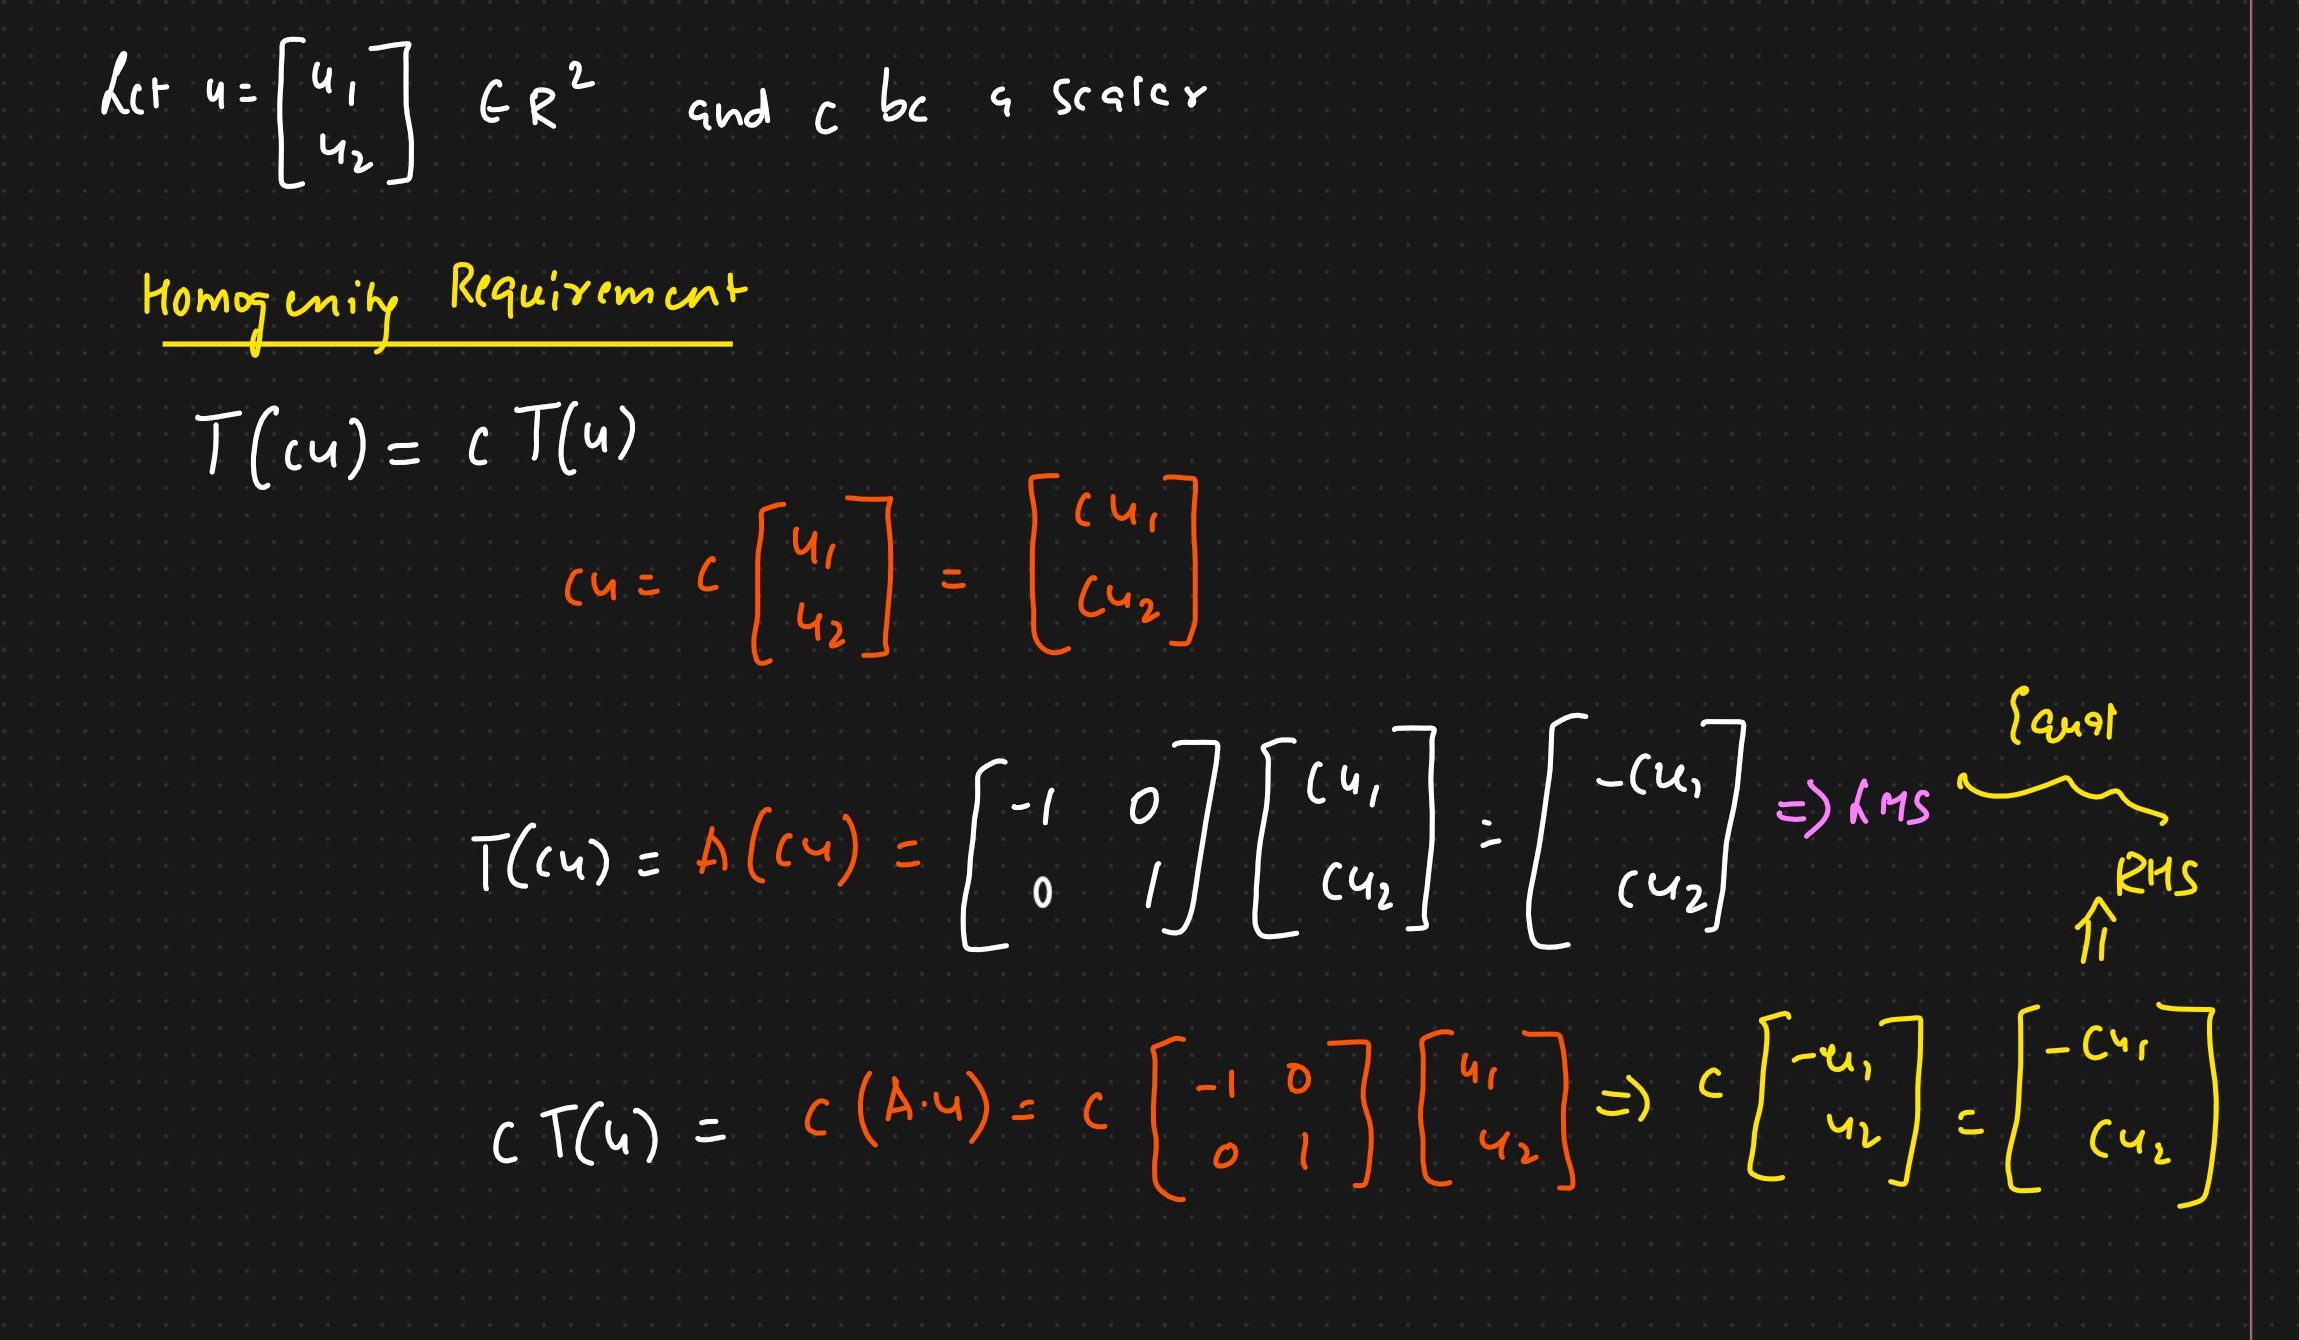 Let u = [u1 u2] ∈ R² and c be a scaler
Homogenity Requirement
T(cu) = c T(u)
cu = c [u1 u2] = [cu1 cu2]
Equal
T(cu) = A(cu) = [-1 0 0 1] [cu1 cu2] = [-cu1 cu2] => LHS
RHS
⇑
c T(u) = c(A·u) = c [-1 0 0 1] [u1 u2] => c [-u1 u2] = [-cu1 cu2]